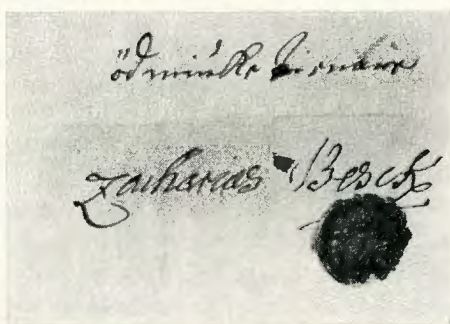 ödmiukke tienare
Zacharias Besck